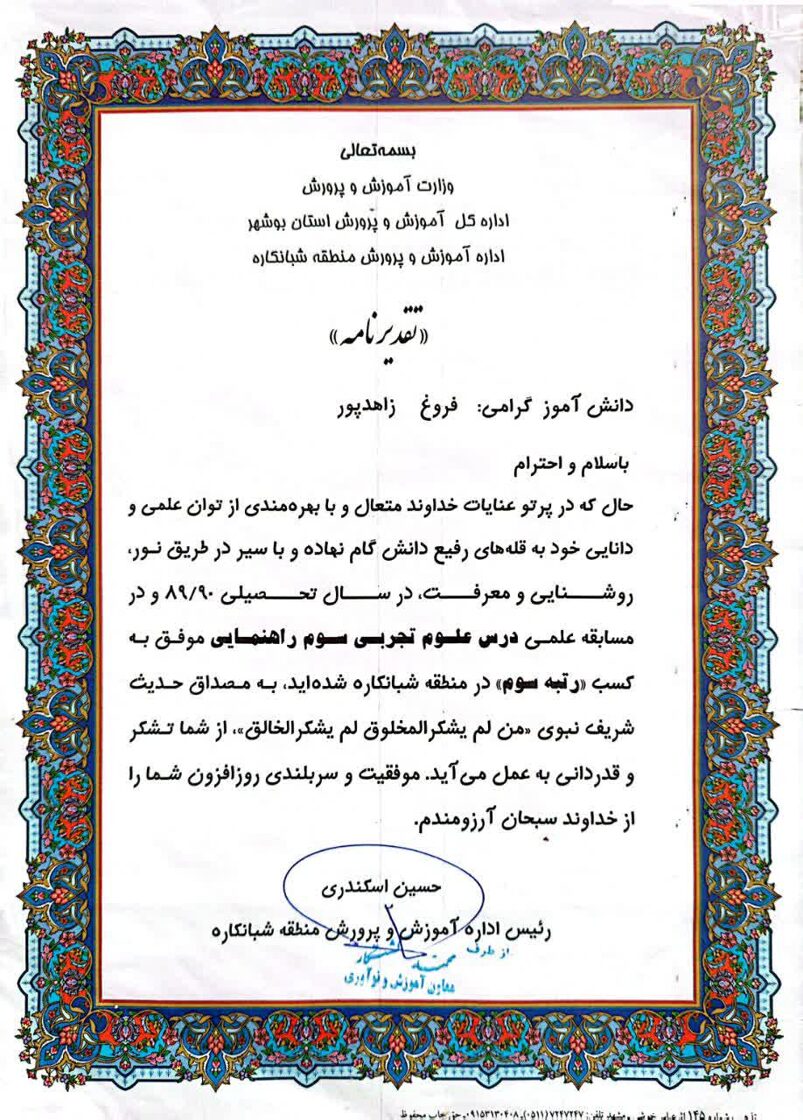 بسمه‌تعالی
وزارت آموزش و پرورش
اداره کل آموزش و پرورش استان بوشهر
اداره آموزش و پرورش منطقه شبانکاره
«تقدیرنامه»
دانش آموز گرامی: فروغ زاهدپور
باسلام و احترام
حال که در پرتو عنایات خداوند متعال و با بهره‌مندی از توان علمی و
دانایی خود به قله‌های رفیع دانش گام نهاده و با سیر در طریق نور،
روشنایی و معرفت، در سال تحصیلی ۸۹/۹۰ و در
مسابقه علمی درس علوم تجربی سوم راهنمایی موفق به
کسب «رتبه سوم» در منطقه شبانکاره شده‌اید، به مصداق حدیث
شریف نبوی «من لم یشکرالمخلوق لم یشکرالخالق»، از شما تشکر
و قدردانی به عمل می‌آید. موفقیت و سربلندی روزافزون شما را
از خداوند سبحان آرزومندم.
حسین اسکندری
رئیس اداره آموزش و پرورش منطقه شبانکاره
از طرف
معاون آموزش و نوآوری
تلفن: ۷۲۴۷۲۴۷ (۰۵۱۱) و ۰۹۱۵۳۱۳۰۴۰۸ حق چاپ محفوظ